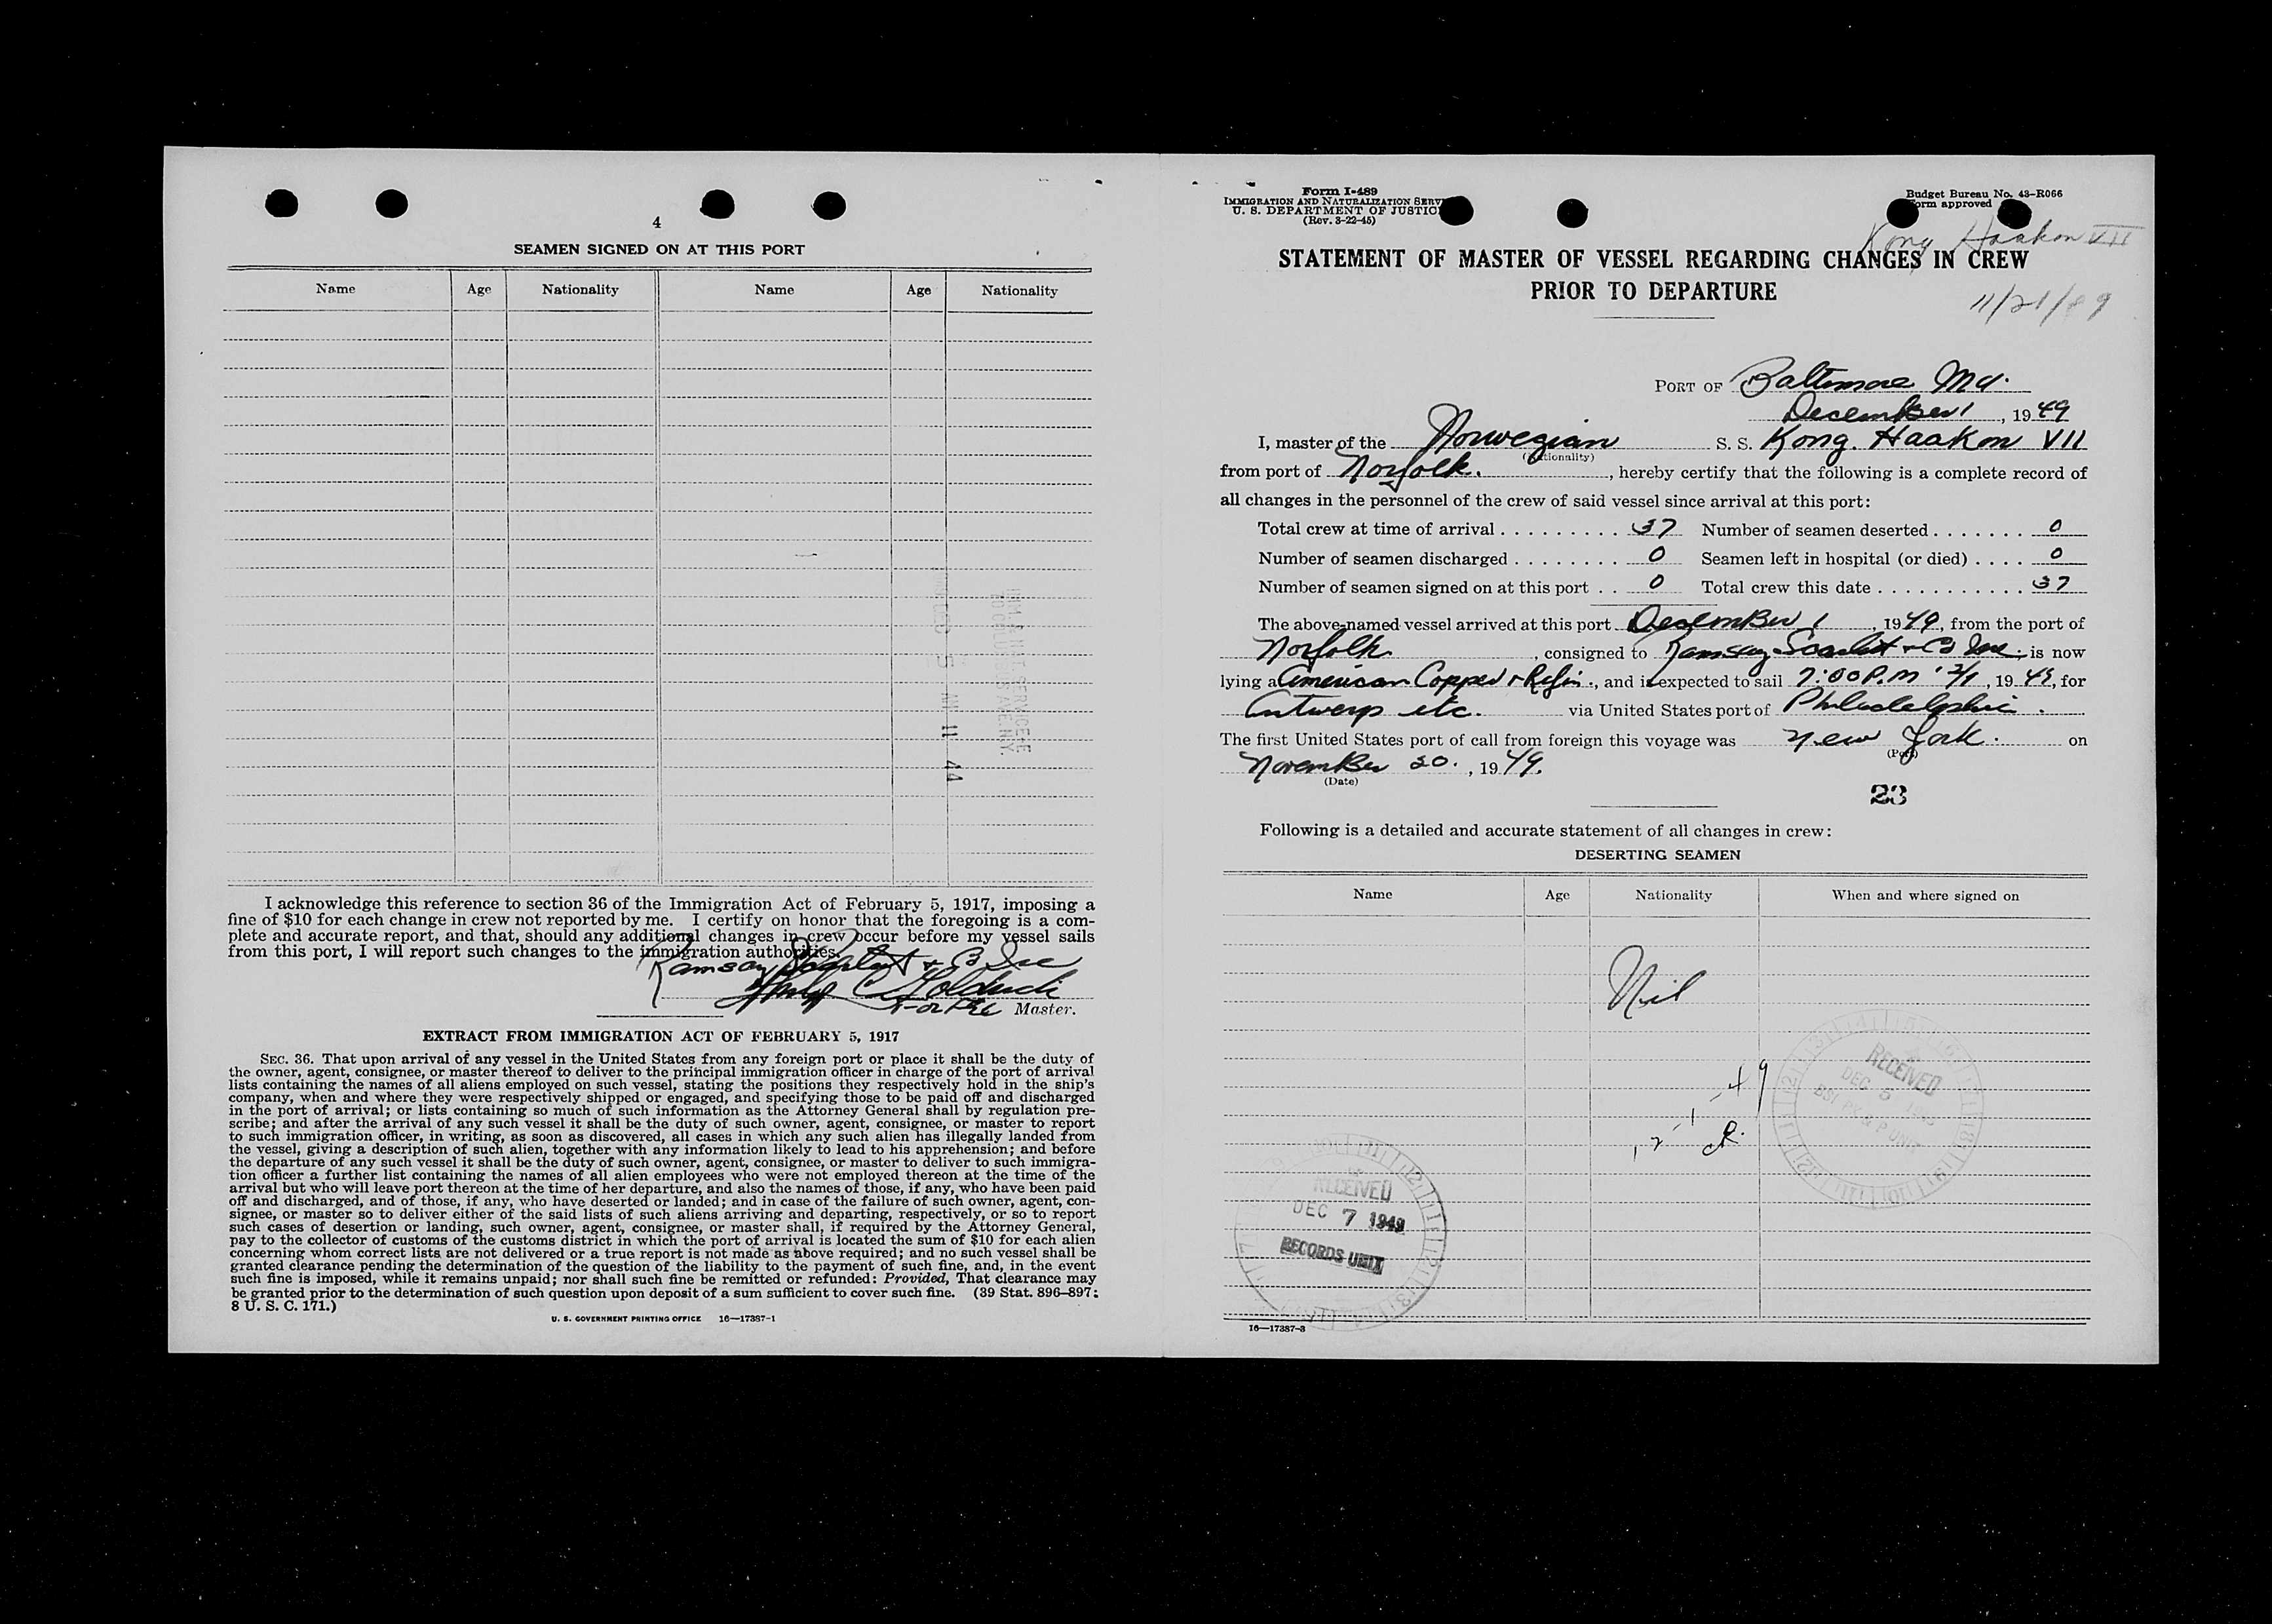 4
SEAMEN SIGNED ON AT THIS PORT
Name Age Nationality Name Age Nationality
IMM. & NAT. SERVICE
DEC 5 AM 11 44
I acknowledge this reference to section 36 of the Immigration Act of February 5, 1917, imposing a
fine of $10 for each change in crew not reported by me. I certify on honor that the foregoing is a com-
plete and accurate report, and that, should any additional changes in crew occur before my vessel sails
from this port, I will report such changes to the immigration authorities.
Ramsay Scarlett & Co Inc
For the Master.
EXTRACT FROM IMMIGRATION ACT OF FEBRUARY 5, 1917
SEC. 36. That upon arrival of any vessel in the United States from any foreign port or place it shall be the duty of
the owner, agent, consignee, or master thereof to deliver to the principal immigration officer in charge of the port of arrival
lists containing the names of all aliens employed on such vessel, stating the positions they respectively hold in the ship's
company, when and where they were respectively shipped or engaged, and specifying those to be paid off and discharged
in the port of arrival; or lists containing so much of such information as the Attorney General shall by regulation pre-
scribe; and after the arrival of any such vessel it shall be the duty of such owner, agent, consignee, or master to report
to such immigration officer, in writing, as soon as discovered, all cases in which any such alien has illegally landed from
the vessel, giving a description of such alien, together with any information likely to lead to his apprehension; and before
the departure of any such vessel it shall be the duty of such owner, agent, consignee, or master to deliver to such immigra-
tion officer a further list containing the names of all alien employees who were not employed thereon at the time of the
arrival but who will leave port thereon at the time of her departure, and also the names of those, if any, who have been paid
off and discharged, and of those, if any, who have deserted or landed; and in case of the failure of such owner, agent, con-
signee, or master so to deliver either of the said lists of such aliens arriving and departing, respectively, or so to report
such cases of desertion or landing, such owner, agent, consignee, or master shall, if required by the Attorney General,
pay to the collector of customs of the customs district in which the port of arrival is located the sum of $10 for each alien
concerning whom correct lists are not delivered or a true report is not made as above required; and no such vessel shall be
granted clearance pending the determination of the question of the liability to the payment of such fine, and, in the event
such fine is imposed, while it remains unpaid; nor shall such fine be remitted or refunded: Provided, That clearance may
be granted prior to the determination of such question upon deposit of a sum sufficient to cover such fine. (39 Stat. 896–897;
8 U. S. C. 171.)
U. S. GOVERNMENT PRINTING OFFICE 16—17387-1
Form I-489
IMMIGRATION AND NATURALIZATION SERV
U. S. DEPARTMENT OF JUSTIC
(Rev. 3-22-45)
Budget Bureau No. 43-R066
orm approved
Kong Haakon VII
STATEMENT OF MASTER OF VESSEL REGARDING CHANGES IN CREW
PRIOR TO DEPARTURE
11/21/49
PORT OF Baltimore Md.
December 1, 1949
I, master of the Norwegian S. S. Kong. Haakon VII
(Nationality)
from port of Norfolk., hereby certify that the following is a complete record of
all changes in the personnel of the crew of said vessel since arrival at this port:
Total crew at time of arrival . . . . . . . . . 37 Number of seamen deserted . . . . . . . 0
Number of seamen discharged . . . . . . . . 0 Seamen left in hospital (or died) . . . . 0
Number of seamen signed on at this port . . 0 Total crew this date . . . . . . . . . . . 37
The above-named vessel arrived at this port December 1, 1949, from the port of
Norfolk, consigned to Ramsay Scarlett & Co Inc., is now
lying a American Copper & Refin., and is expected to sail 7:00 P.M 12/1, 1949, for
Antwerp etc. via United States port of Philadelphia.
The first United States port of call from foreign this voyage was New York. on
(Port)
November 20., 1949.
(Date)
23
Following is a detailed and accurate statement of all changes in crew:
DESERTING SEAMEN
Name Age Nationality When and where signed on
Nil
12-1-49
RECEIVED
DEC 5
RECEIVED
DEC 7 1949
RECORDS UNIT
16—17387-3